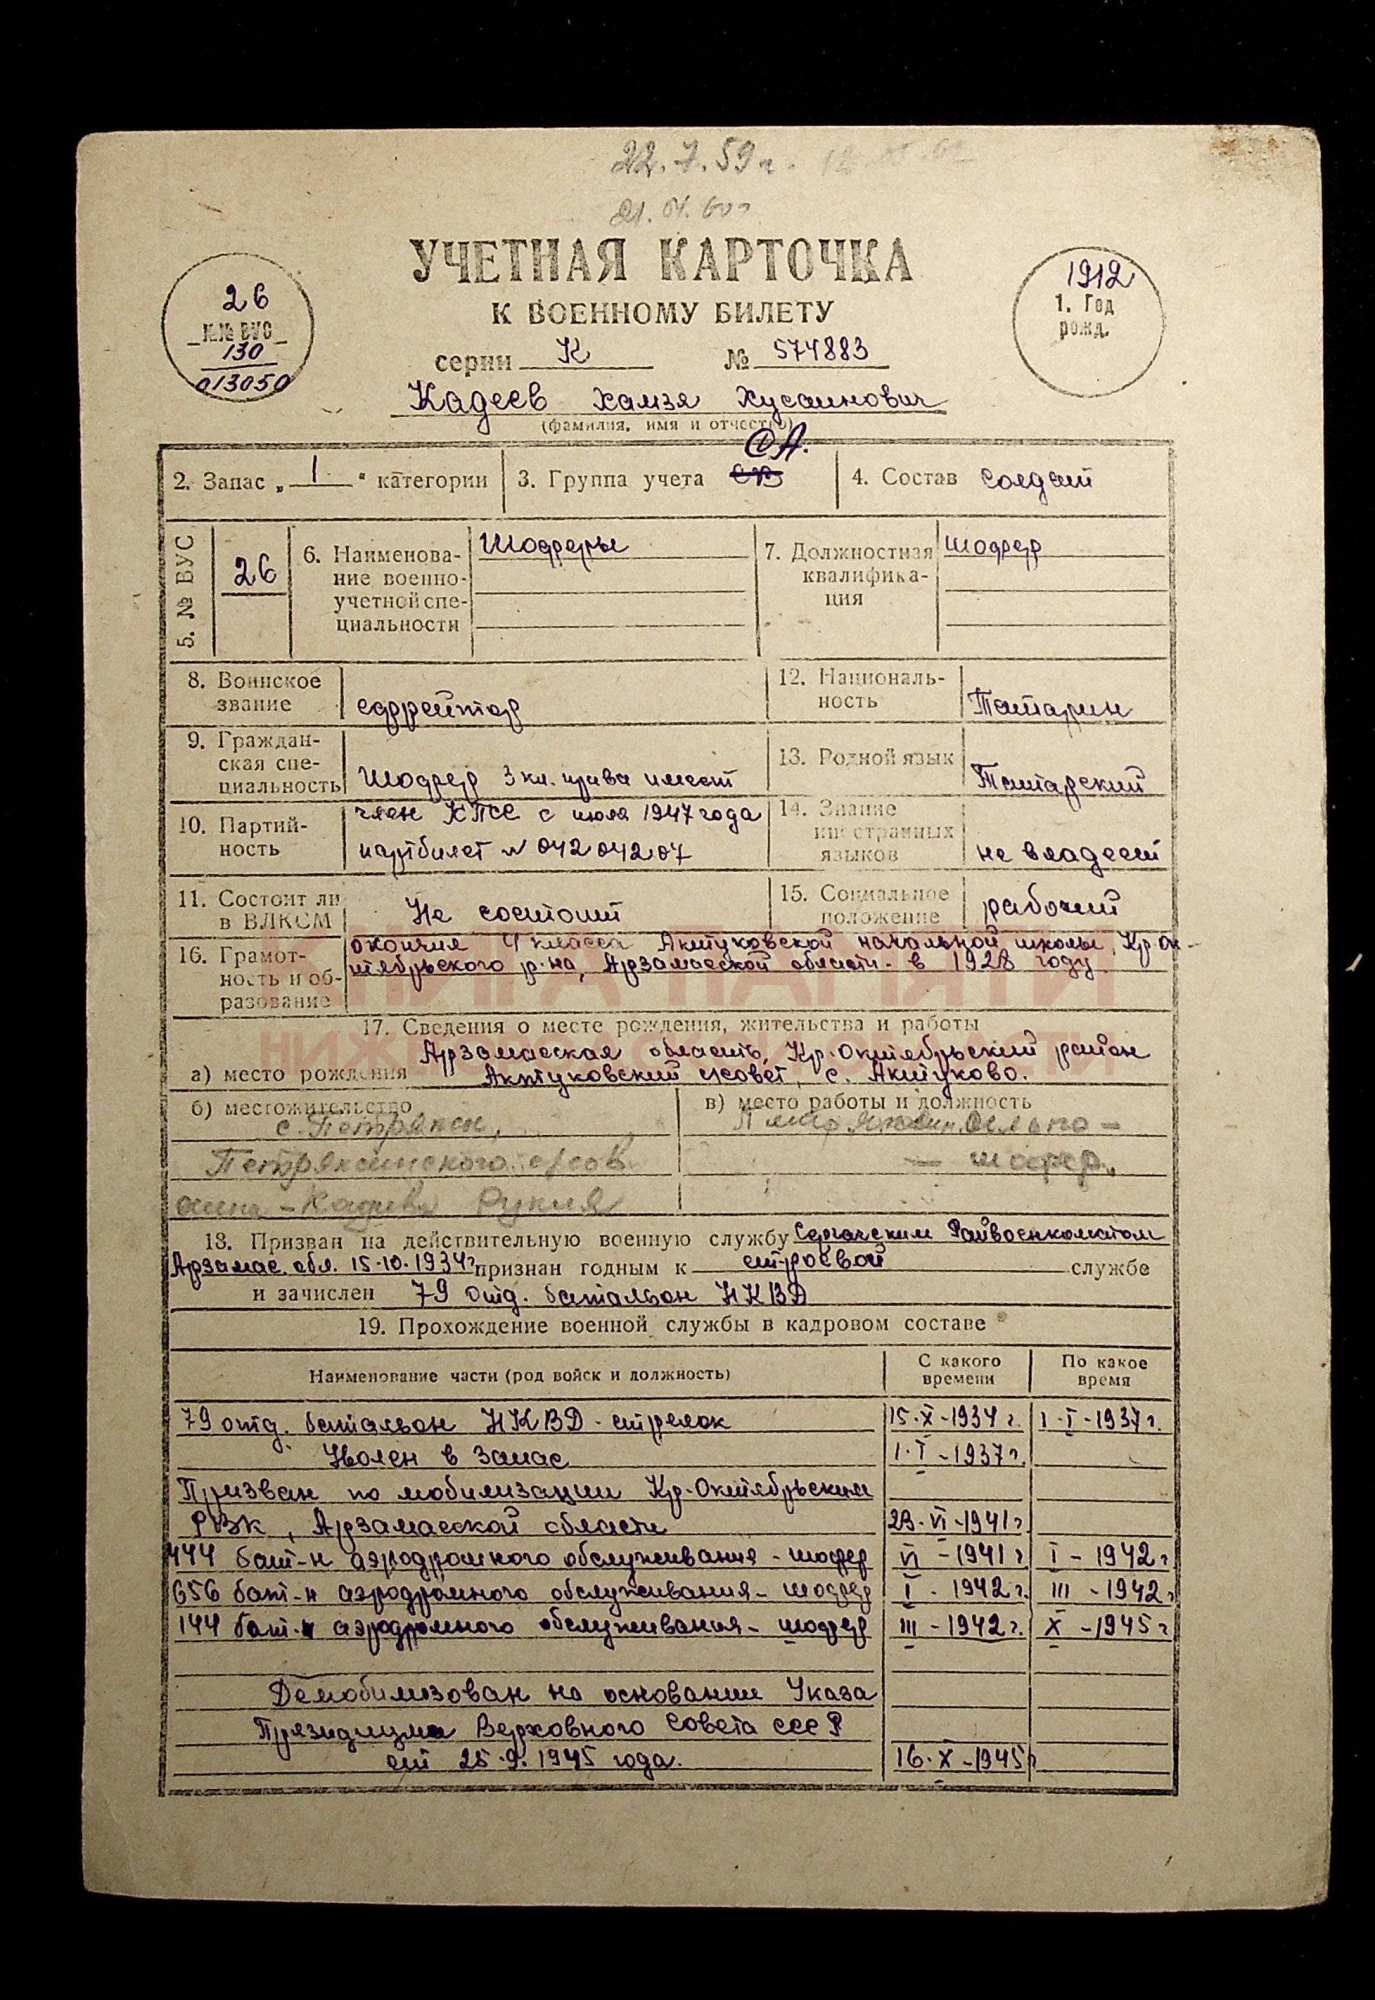 22.7.59г.
21.01.60г
УЧЕТНАЯ КАРТОЧКА
К ВОЕННОМУ БИЛЕТУ
серии К № 574883
26
№№ ВУС
130
013050
1912
1. Год
рожд.
Кадеев Хамзя Хусаинович
(фамилия, имя и отчество)
СА.
2. Запас „ I “ категории
3. Группа учета
4. Состав солдат
5. № ВУС
26
6. Наименова-
ние военно-
учетной спе-
циальности
Шоферы
7. Должностная
квалифика-
ция
шофер
8. Воинское
звание
ефрейтор
12. Националь-
ность
Татарин
9. Граждан-
ская спе-
циальность
Шофер 3 кл. права имеет
13. Родной язык
Татарский
10. Партий-
ность
член КПСС с июля 1947 года
партбилет № 04204207
14. Знание
иностранных
языков
не владеет
11. Состоит ли
в ВЛКСМ
Не состоит
15. Социальное
положение
рабочий
16. Грамот-
ность и об-
разование
окончил 4 класса Актуковской начальной школы, Кр-Ок-
тябрьского р-на, Арзамасской области - в 1928 году.
КНИГА ПАМЯТИ
НИЖЕГОРОДСКОЙ ОБЛАСТИ
17. Сведения о месте рождения, жительства и работы
Арзамасская область, Кр-Октябрьский район
а) место рождения Актуковский с/совет, с. Актуково.
б) местожительство
с. Петряксы,
Петряксинского с/сов.
жена - Кадеева Рукия
в) место работы и должность
сельпо -
- шофер.
18. Призван на действительную военную службу Сергачским Райвоенкоматом
Арзамас. обл. 15.10.1934г признан годным к строевой службе
и зачислен 79 отд. батальон НКВД
19. Прохождение военной службы в кадровом составе
Наименование части (род войск и должность)
С какого
времени
По какое
время
79 отд. батальон НКВД - стрелок 15.X-1934г. 1.I-1937г.
Уволен в запас 1.I-1937г.
Призван по мобилизации Кр-Октябрьским
РВК, Арзамасской области 23.VI-1941г.
444 бат-н аэродромного обслуживания - шофер VI - 1941г I - 1942г
656 бат-н аэродромного обслуживания - шофер I - 1942г. III - 1942г
144 бат-н аэродромного обслуживания - шофер III - 1942г. X - 1945г
Демобилизован на основании Указа
Президиума Верховного Совета СССР
от 25.9.1945 года. 16.X-1945г